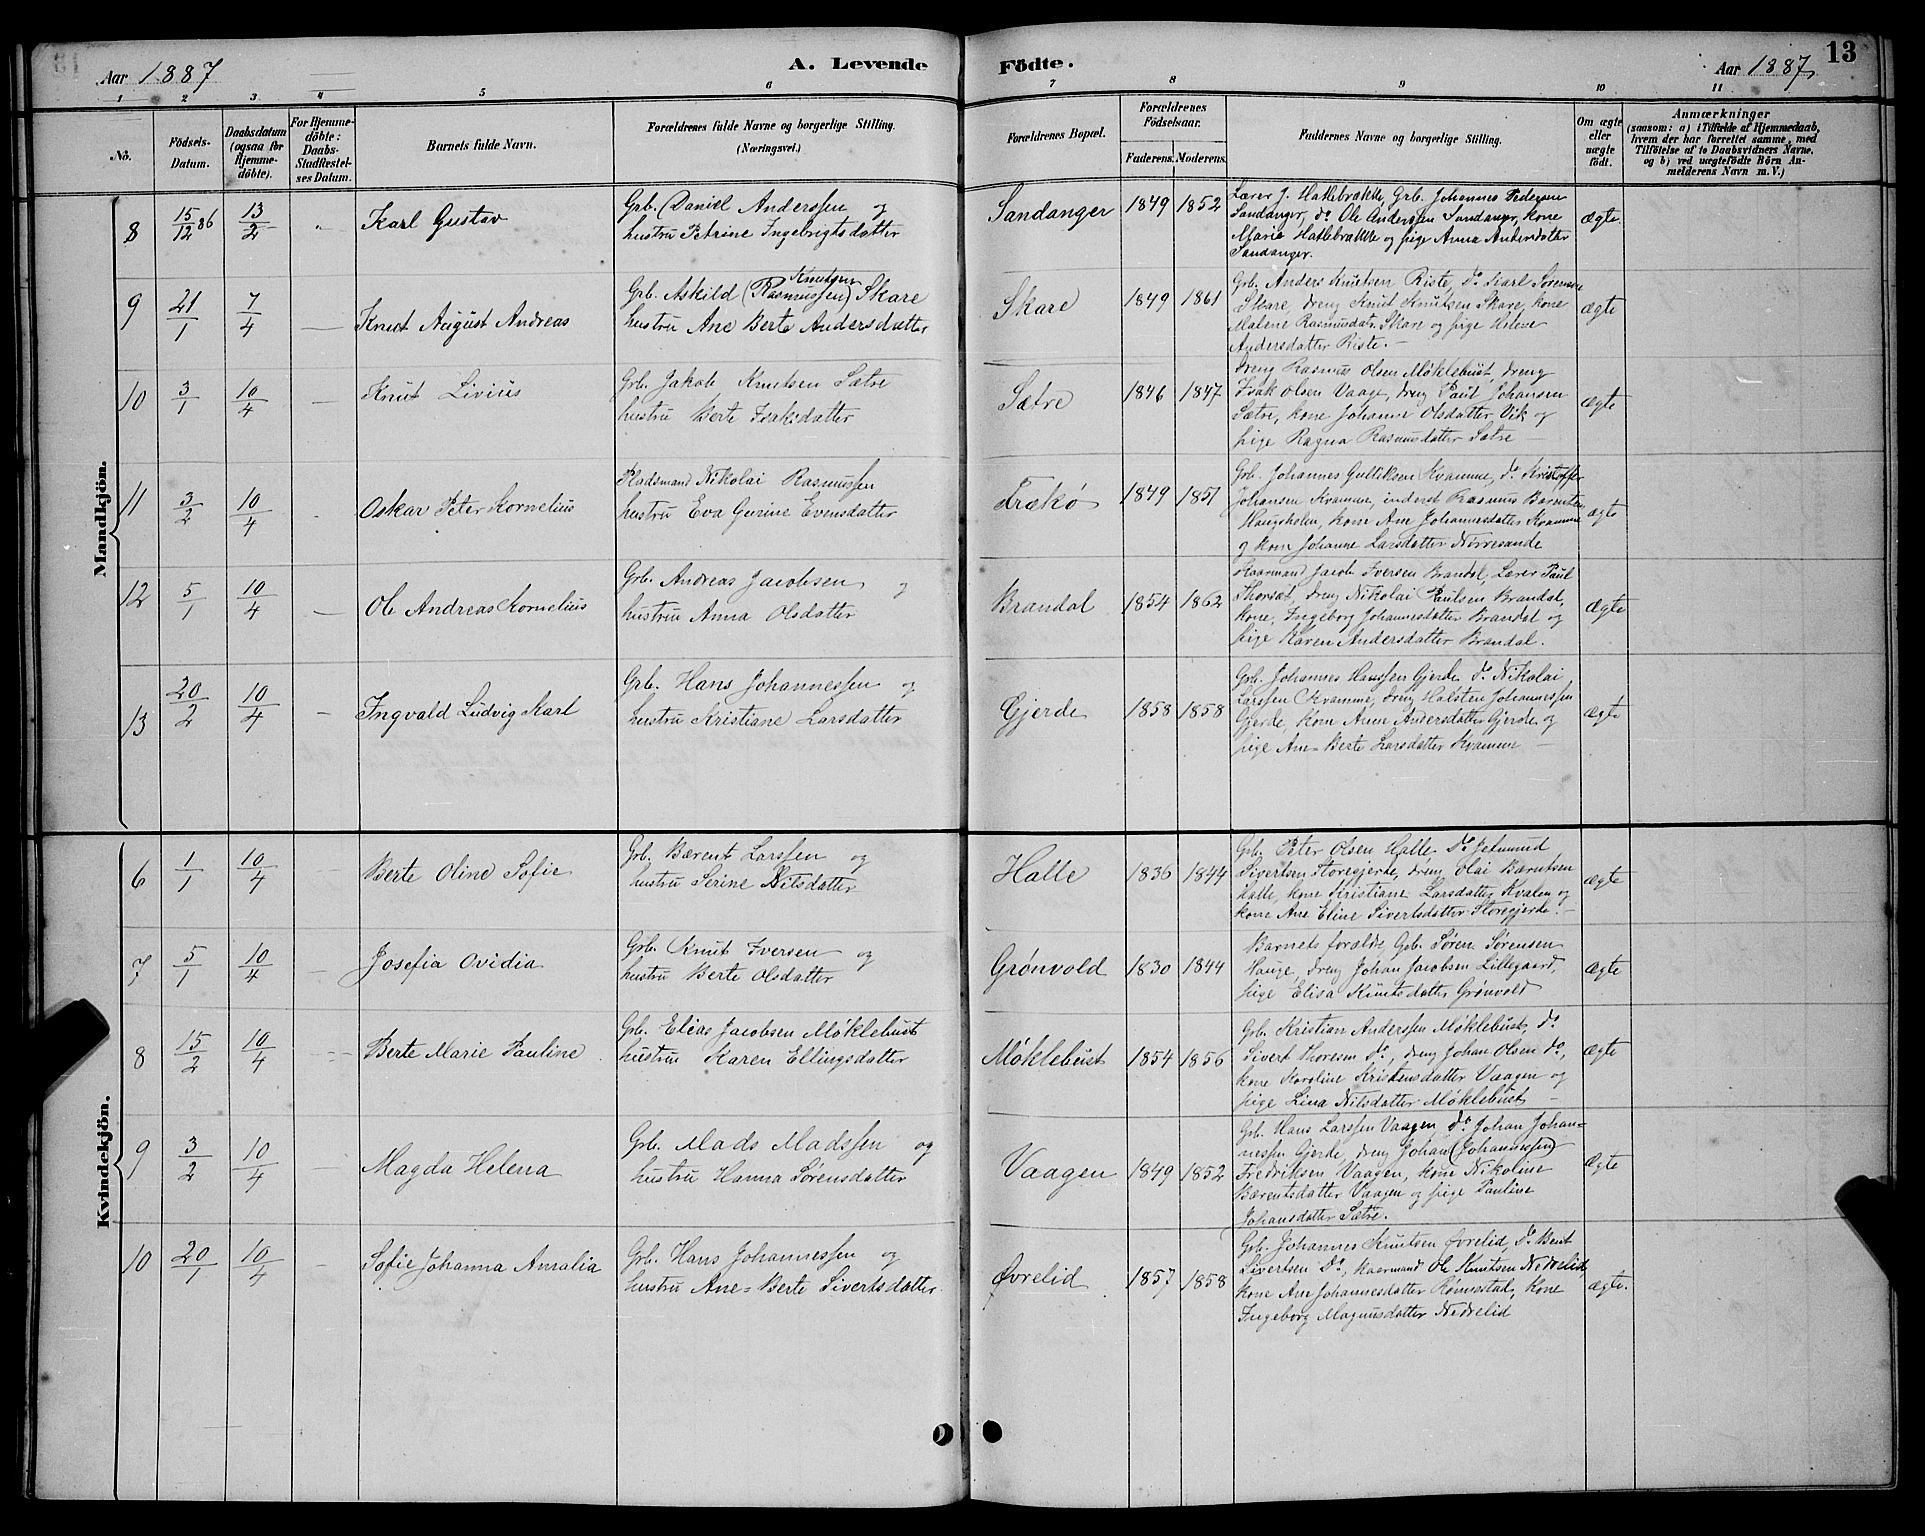 Aar 1887
A. Levende Födte.
Aar 1887.
13
1 2 3 4 5 6 7 8 9 10 11
No.
Födsels-Datum.
Daabsdatum (ogsaa for Hjemme-döbte).
For Hjemme-döbte: Daabs-Stadfæstel-ses Datum.
Barnets fulde Navn.
Forældrenes fulde Navne og borgerlige Stilling.
(Næringsvei.)
Forældrenes Bopæl.
Forældrenes Födselsaar.
Faderens. Moderens.
Faddernes Navne og borgerlige Stilling.
Om ægte eller uægte født.
Anmærkninger
(saasom: a) i Tilfælde af Hjemmedaab,
hvem der har forrettet samme, med
Tilföielse af to Daabsvidners Navne,
og b) ved uægtefödte Börn An-
melderens Navn m. V.)
Mandkjön.
8 15/12 86 13/2 Karl Gustav
Grb. (Daniel Anderssen og
hustru Petrine Ingebrigtsdatter
Sandanger 1849 1852
Lærer J. Hatlebrække, Grb. Johannes Pedersen
Sandanger, do Ole Anderssen Sandanger, kone
Marie Hatlebrække og pige Anna Andersdatter
Sandanger.
ægte
9 21/1 7/4 Knut August Andreas
Knutsen
Grb. Askild (Rasmussen) Skare
hustru Ane Berte Andersdatter
Skare 1849 1861
Grb. Anders Knutsen Riste, do Karl Sørensen
Skare, dreng Knut Knutsen Skare, kone
Malene Rasmusdatr. Skare og pige Helene
Andersdatter Riste. —
ægte
10 3/1 10/4 Knut Livius
Grb. Jakob Knutsen Sætre
hustru Berte Isaksdatter
Sætre 1846 1847
dreng Rasmus Olsen Møklebust, dreng
Isak Olsen Vaage, dreng Paul Johansen
Sætre, kone Johanne Olsdatter Vik og
pige Ragna Rasmusdatter Sætre —
ægte
11 3/2 10/4 Oskar Peter Kornelius
Pladsmand Nikolai Rasmussen
hustru Eva Gurine Evensdatter
Trækø 1849 1851
Grb. Johannes Gulliksen Kvamme, do Kristoffer
Johansen Kvamme, inderst Rasmus Barentsen
Haugsholen, kone Ane Johannesdatter Kvamme
og kone Johanne Larsdatter Nørresande
ægte
12 5/1 10/4 Ole Andreas Kornelius
Grb. Andreas Jacobsen og
hustru Anna Olsdatter
Brandal 1854 1862
Kaarmand Jacob Iversen Brandal, Lærer Paul
Thorsæt, dreng Nikolai Knutsen Brandal,
kone Ingeborg Johannesdatter Brandal og
pige Karen Andersdatter Brandal.
Ægte
13 20/2 10/4 Ingvald Ludvig Karl
Grb. Hans Johannessen og
hustru Kristiane Larsdatter
Gjerde 1858 1858
Grb. Johannes Hanssen Gjerde do Nikolai
Larssen Kvamme, dreng Halsten Johannessen
Gjerde, kone Anne Andersdatter Gjerde og
pige Ane-Berte Larsdatter Kvamme —
ægte
Kvindekjön.
6 1/1 10/4 Berte Oline Sofie
Grb. Bærent Larssen og
hustru Serine Nilsdatter
Halle 1836 1844
Grb. Peter Olsen Halle. Do Jetmund
Sivertsen Storegjerde, dreng Olai Barentsen
Halle, kone Kristiane Larsdatter Kvalen og
kone Ane Eline Sivertsdatter Storegjerde. —
ægte
7 5/1 10/4 Josefia Ovidia
Grb. Knut Iversen og
hustru Berte Olsdatter
Grønvold 1830 1844
Barnets forælde Grb. Søren Sørensen
Hauge, dreng Johan Jacobsen Lillegaard,
pige Elisa Knutsdatter Grønvold
ægte
8 15/2 10/4 Berte Marie Pauline
Grb. Elias Jacobsen Møklebust
hustru Karen Ellingsdatter
Møklebust 1854 1856
Grb. Kristian Anderssen Møklebust, do
Sivert Thoresen do, dreng Johan Olsen do,
kone Karoline Kristensdatter Vaagen og
pige Lina Nilsdatter Møklebust —
Ægte
9 3/2 10/4 Magda Helena
Grb. Mads Madssen og
hustru Hanna Sørensdatter
Vaagen 1849 1852
Grb. Hans Larssen Vaagen do Johan Johan-
nessen Gjerde, dreng Johan (Johannssen)
Fredriksen Vaagen, kone Nikoline
Bærentsdatter Vaagen og pige Pauline
Johansdatter Sætre.
Ægte
10 20/1 10/4 Sofie Johanna Amalia
Grb. Hans Johannessen og
hustru Ane-Berte Sivertsdatter.
Øvrelid 1857 1858
Grb. Johannes Knutsen Øvrelid, Do Bent
Sivertsen Do, kaarmand Ole Knutsen Nedrelid,
kone Ane Johannesdatter Rømestad, kone
Ingeborg Magnusdatter Nedrelid
ægte.